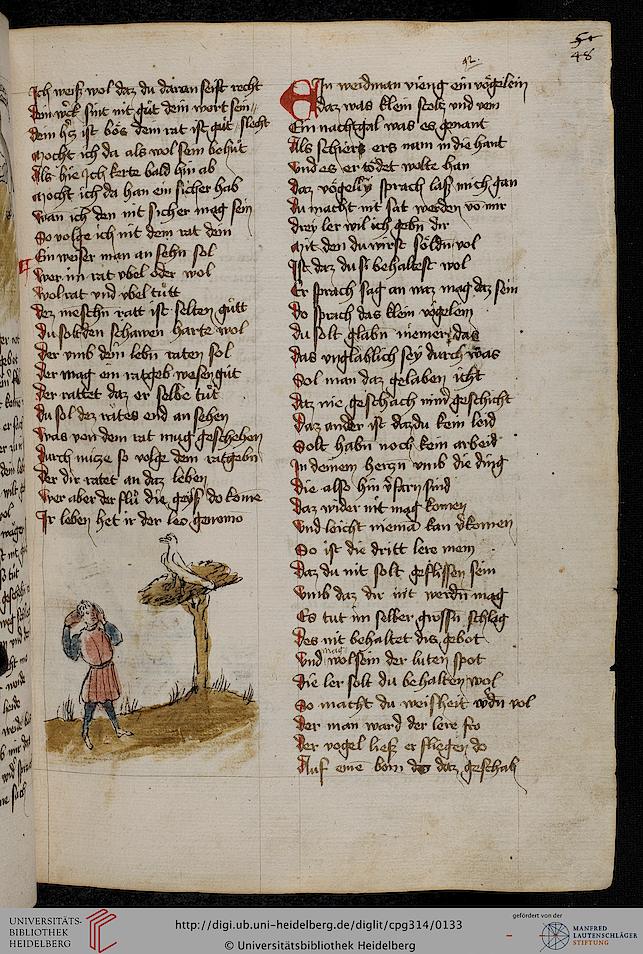 51
48
42.
Ich weiß wol daz du daran seist recht
Dem werck sint nit gut dein wort sein
Dem hertz ist bös dem rat ist gut slecht
Mocht ich da als wol sein behüt
Als hie Ich kerte bald hin ab
Mocht ich da han ein sicher hab
Wan ich den nit sicher mag sein
So volge ich nit dem rat dein
Ein weiser man an sehn sol
Wer im rat vbel oder wol
Wol rat vnd vbel tůtt
Dez menschn ratt ist selten gůtt
Du solt den schawen harte wol
Der vmb dein lebn raten sol
Der mag ein ratgeb wesen gůt
Der rattet daz er selbe tůt
Du sol dez rates end an sehen
Was von dem rat mug geschehen
Durch nücze so volge dem ratgebn
Der dir ratet an daz leben
Wer aber der flů die geyß do kome
Ir leben het ir der leo genomō
Ein weidman vieng ein vögelein
daz was klein stolz vnd vein
Ein nachtgal was es genant
Als schiers ers nam in die hant
Vnd es er tödet wolte han
Daz vögelly sprach laß mich gan
Du macht nit sat werden vō mir
Drey ler wil ich gebn dir
Mit den du wirst söldn vol
Ist daz du si behaltest wol
Er sprach sag an waz mag daz sein
Do sprach das klein vögelein
Du solt glabn niemer das
Das vnglablich sey durch was
Sol man daz gelaben icht
Daz nie geschach nund geschicht
Daz ander ist dazdu kein leid
Solt habn noch kein arbeid
In deinem herzn vmb die ding
Die also hin v̓farn sind
Daz wider nit mag komen
Vnd leicht niema kan v̓komen
So ist die dritt lere mein
Daz du nit solt geflissen sein
Vmb daz dir nit werdn mag
Es tut im selber grossn schlag
Des nit behaltet dis gebot
Vnd mag wol sein der luten spot
Die ler solt du behalten wol
So macht du weisheit wdn vol
Der man ward der lere fro
Der vogel ließ er fliegen do
Auf eine bom do daz geschah
UNIVERSITÄTS-
BIBLIOTHEK
HEIDELBERG
http://digi.ub.uni-heidelberg.de/diglit/cpg314/0133
© Universitätsbibliothek Heidelberg
gefördert von der
MANFRED
LAUTENSCHLÄGER
STIFTUNG